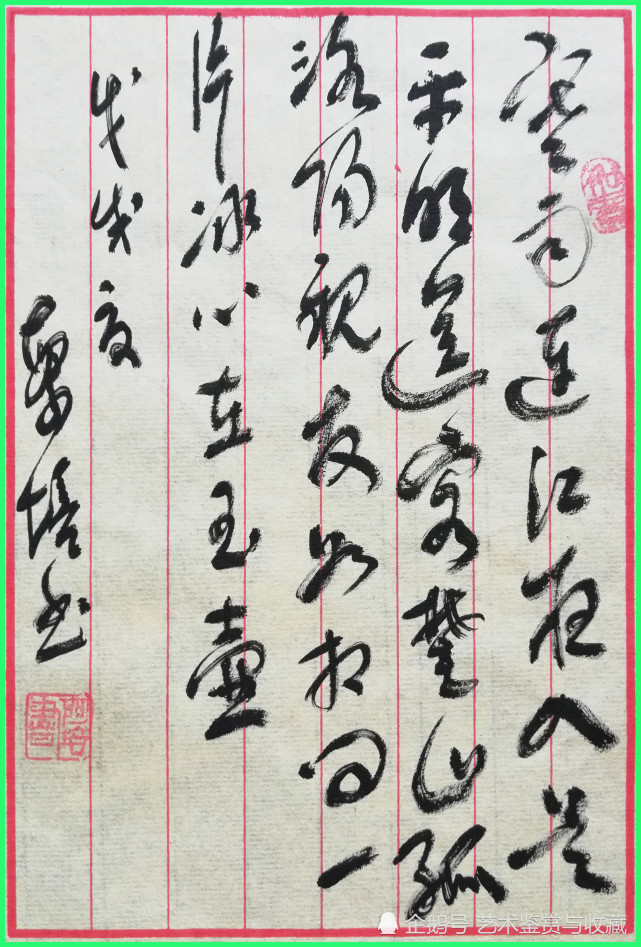 寒雨連江夜入吳
平明送客楚山孤
洛陽親友如相問一
片冰心在玉壺
戊戌夏
培書
企鹅号 艺术鉴赏与收藏